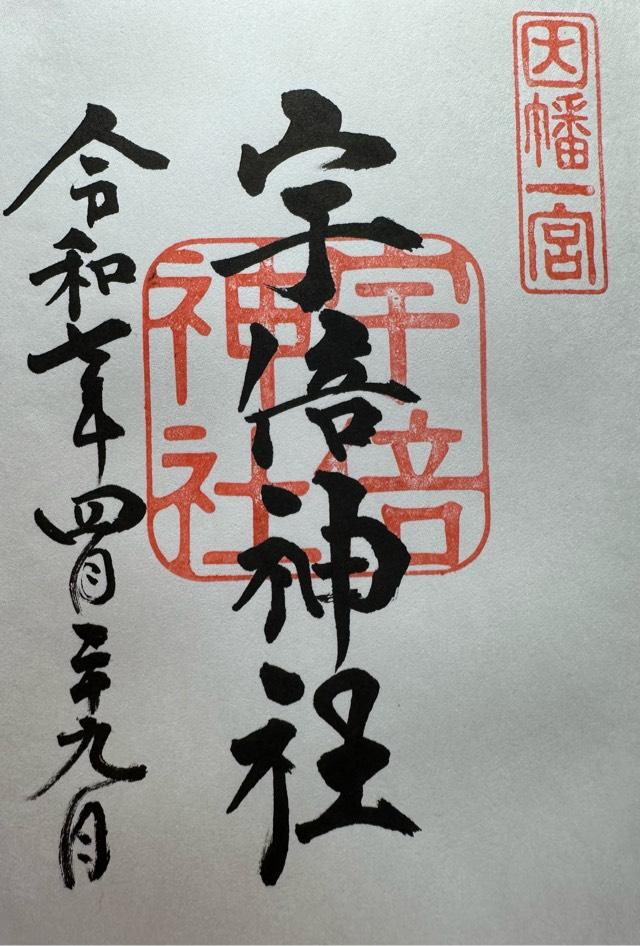 因幡一宮
宇倍神社
宇倍神社
令和七年四月二十九日